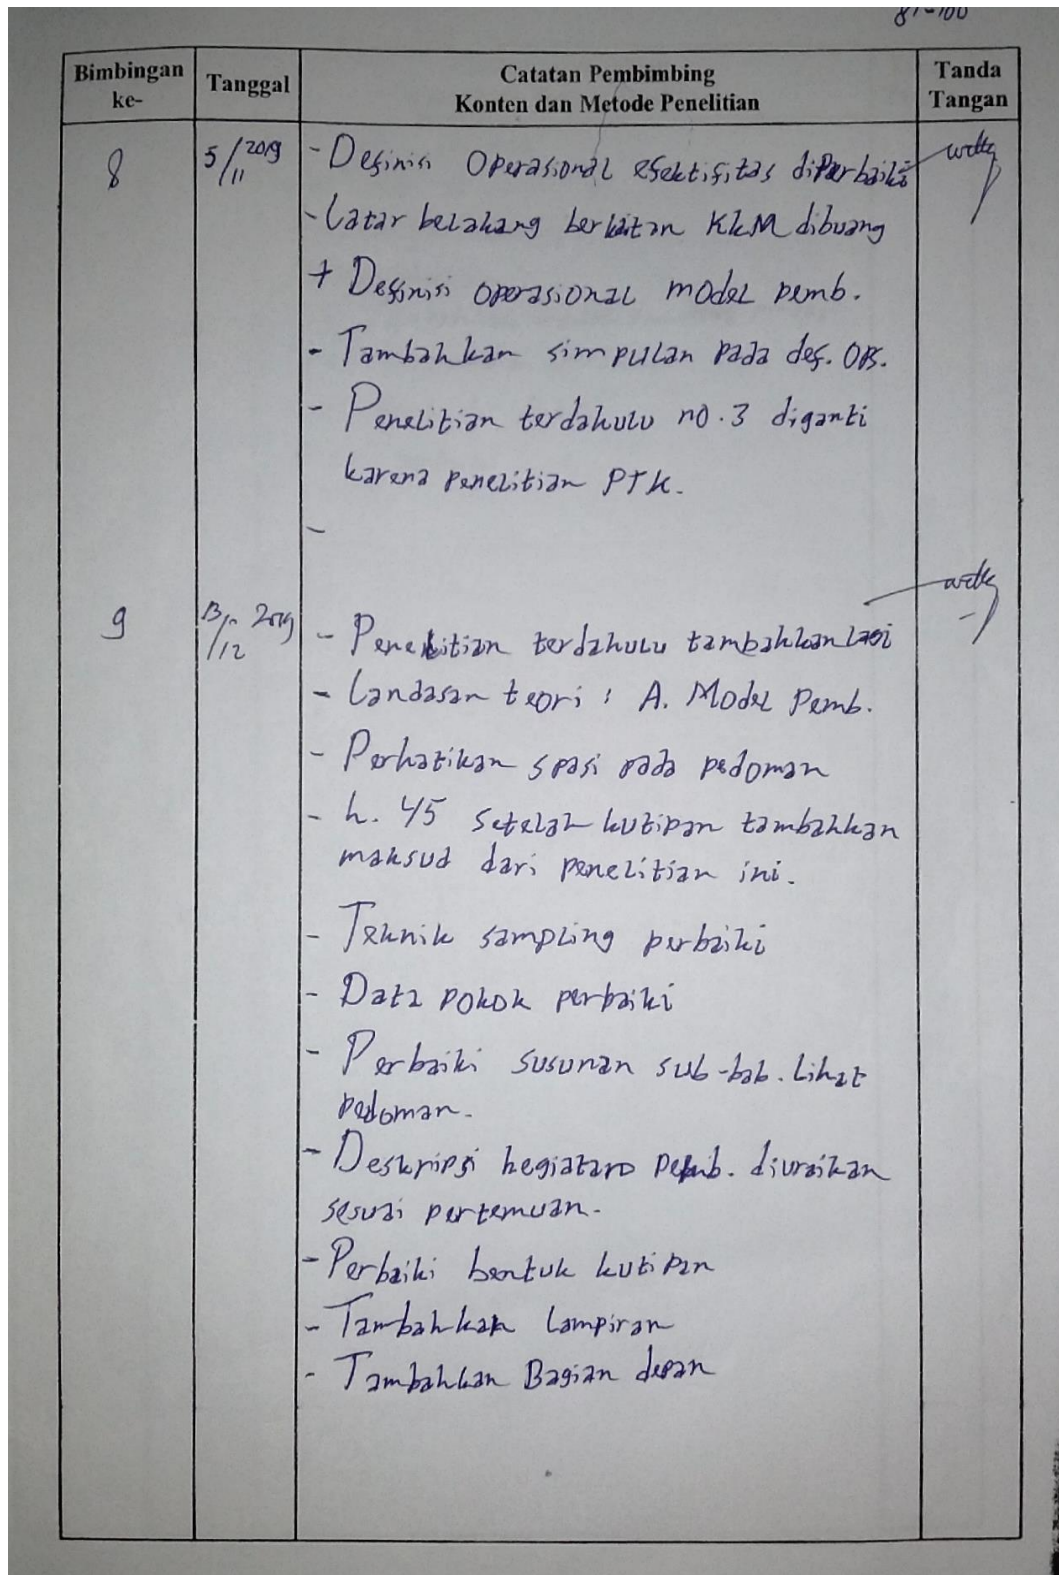 81-100
Bimbingan ke- Tanggal Catatan Pembimbing Konten dan Metode Penelitian Tanda Tangan
8 5/11 2019 - Definisi Operasional efektifitas diperbaiki
- Latar belakang berkaitan KKM dibuang
+ Definisi operasional model pemb.
- Tambahkan simpulan pada def. OPS.
- Penelitian terdahulu no.3 diganti
karena penelitian PTK.
-
9 13/12 2019 - Penelitian terdahulu tambahkan lagi
- Landasan teori : A. Model Pemb.
- Perhatikan spasi pada pedoman
- h. 45 setelah kutipan tambahkan
maksud dari penelitian ini.
- Teknik sampling perbaiki
- Data pokok perbaiki
- Perbaiki susunan sub-bab. Lihat
pedoman.
- Deskripsi kegiatan pemb. diuraikan
sesuai pertemuan.
- Perbaiki bentuk kutipan
- Tambahkan Lampiran
- Tambahkan Bagian depan